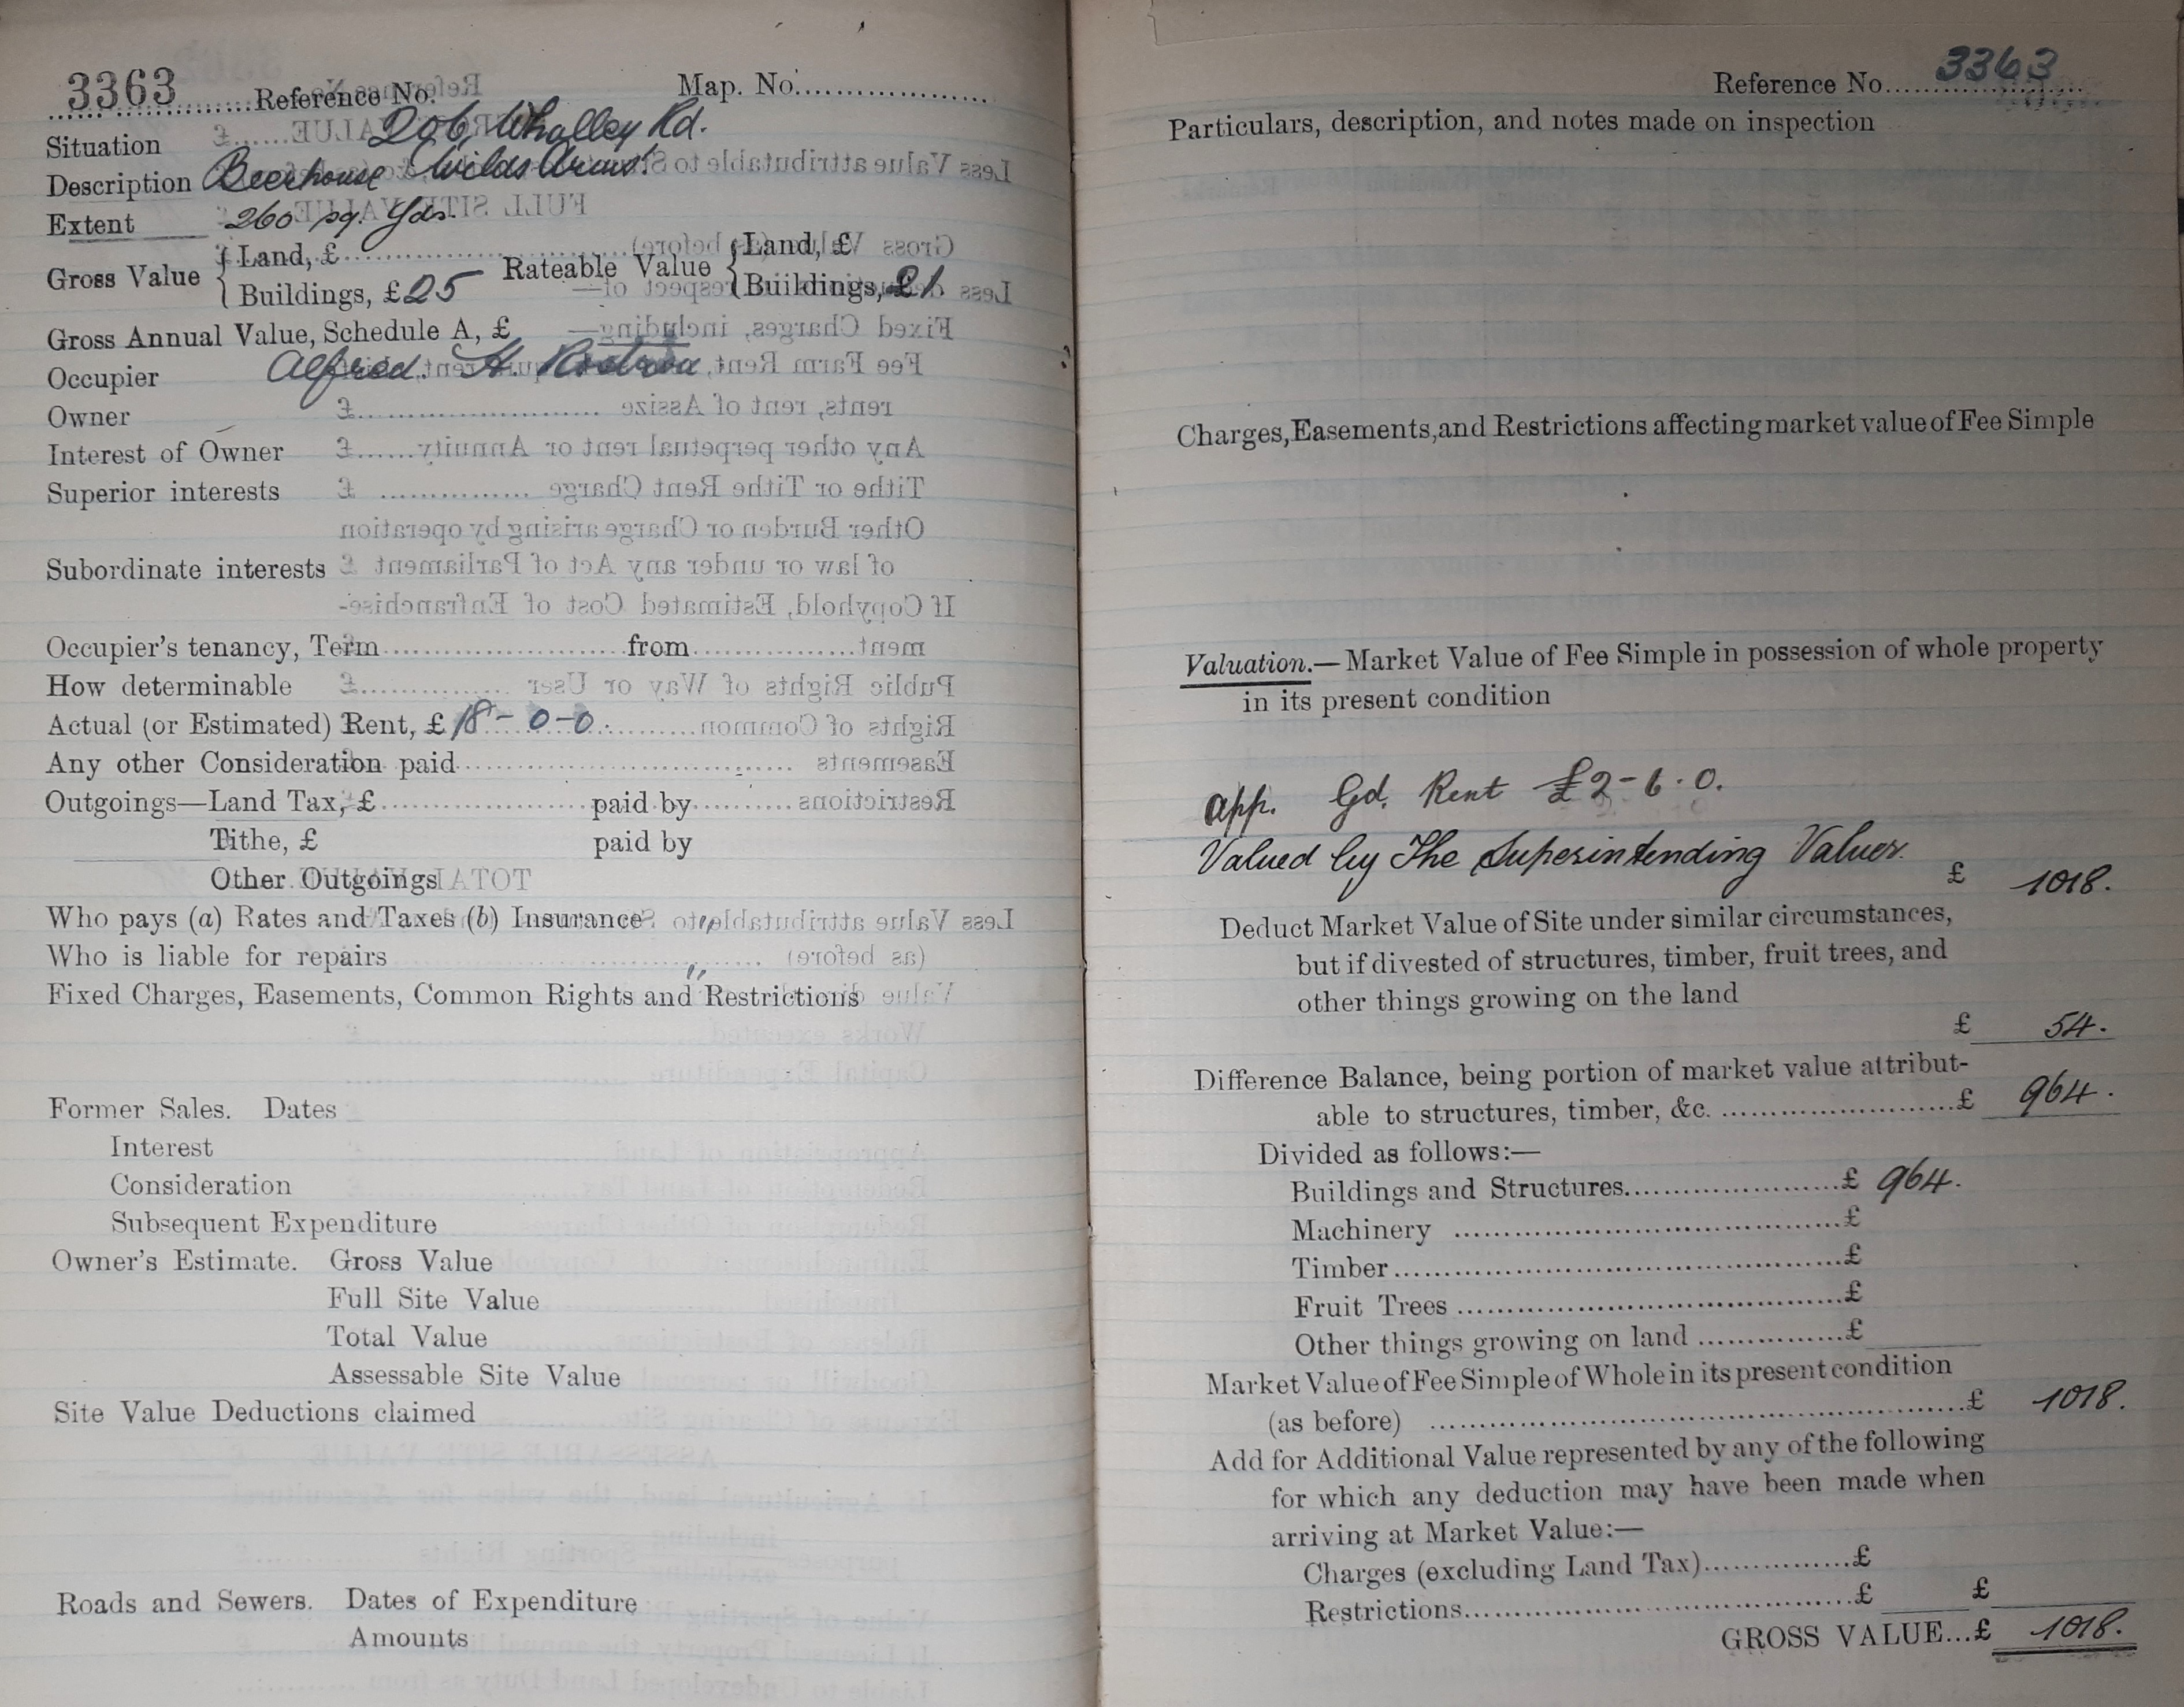 3363 Reference No. Map. No.
Situation 206, Whalley Rd.
Description Beerhouse "Wilds Arms".
Extent 260 sq. yds.
Gross Value { Land, £ Rateable Value { Land, £
Buildings, £25 Buildings, £21
Gross Annual Value, Schedule A, £
Occupier Alfred. H.
Owner
Interest of Owner
Superior interests
Subordinate interests
Occupier's tenancy, Term from
How determinable
Actual (or Estimated) Rent, £18-0-0.
Any other Consideration paid
Outgoings—Land Tax, £ paid by
Tithe, £ paid by
Other Outgoings
Who pays (a) Rates and Taxes (b) Insurance
Who is liable for repairs
Fixed Charges, Easements, Common Rights and Restrictions
Former Sales. Dates
Interest
Consideration
Subsequent Expenditure
Owner's Estimate. Gross Value
Full Site Value
Total Value
Assessable Site Value
Site Value Deductions claimed
Roads and Sewers. Dates of Expenditure
Amounts
Reference No. 3363
Particulars, description, and notes made on inspection
Charges, Easements, and Restrictions affecting market value of Fee Simple
Valuation.—Market Value of Fee Simple in possession of whole property
in its present condition
app. Gd. Rent £2-6-0.
Valued by The Superintending Valuer.
£ 1018.
Deduct Market Value of Site under similar circumstances,
but if divested of structures, timber, fruit trees, and
other things growing on the land
£ 54.
Difference Balance, being portion of market value attribut-
able to structures, timber, &c. £ 964.
Divided as follows:—
Buildings and Structures £ 964.
Machinery £
Timber £
Fruit Trees £
Other things growing on land £
Market Value of Fee Simple of Whole in its present condition
(as before) £ 1018.
Add for Additional Value represented by any of the following
for which any deduction may have been made when
arriving at Market Value:—
Charges (excluding Land Tax) £
Restrictions £ £
GROSS VALUE...£ 1018.